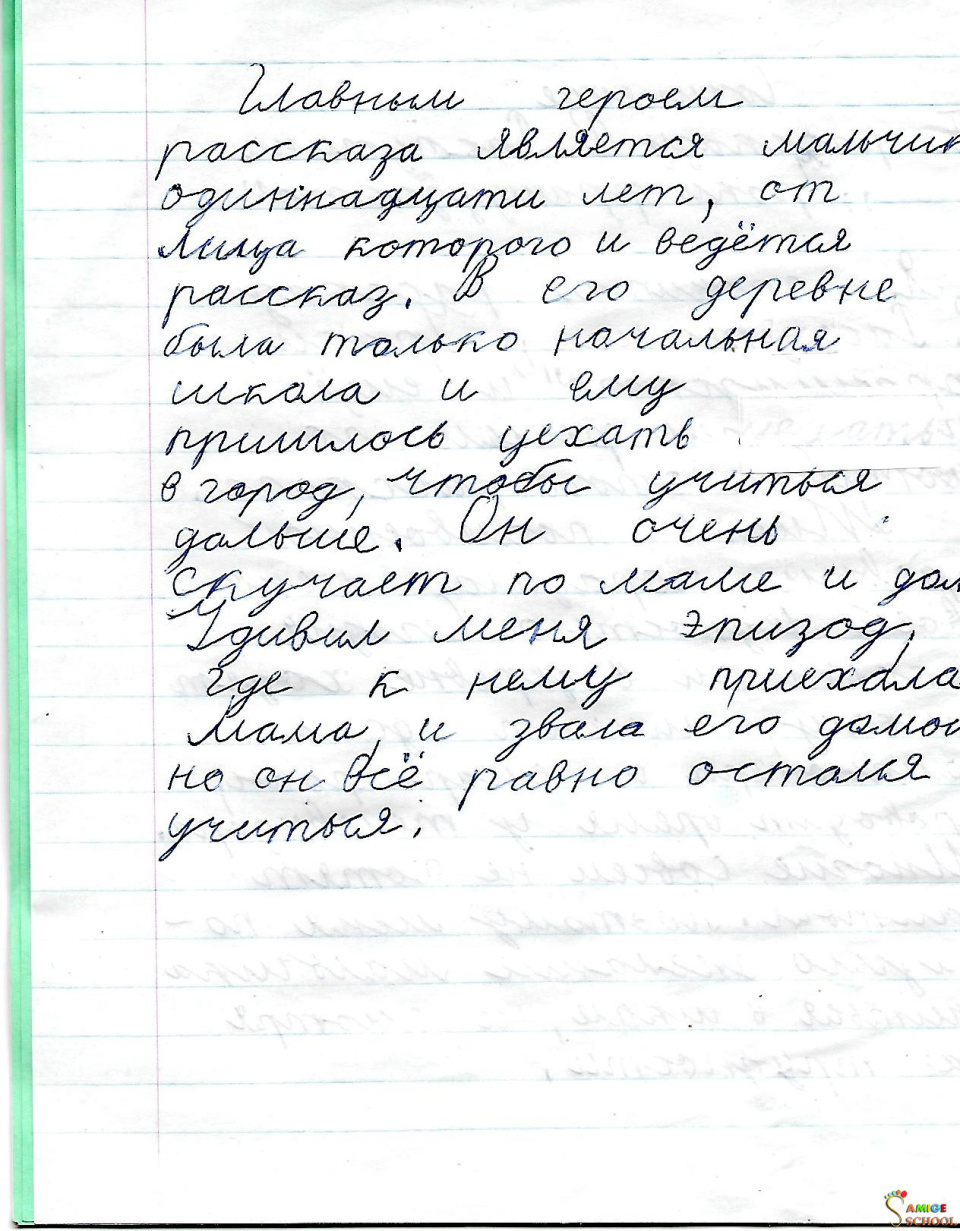 Главным героем
рассказа является мальчик
одиннадцати лет, от
лица которого и ведётся
рассказ. В его деревне
была только начальная
школа и ему
пришлось уехать
в город, чтобы учиться
дальше. Он очень
скучает по маме и дом
Удивил меня эпизод,
где к нему приехала
мама, и звала его домой
но он всё равно остался
учиться.
AMIGE
SCHOOL